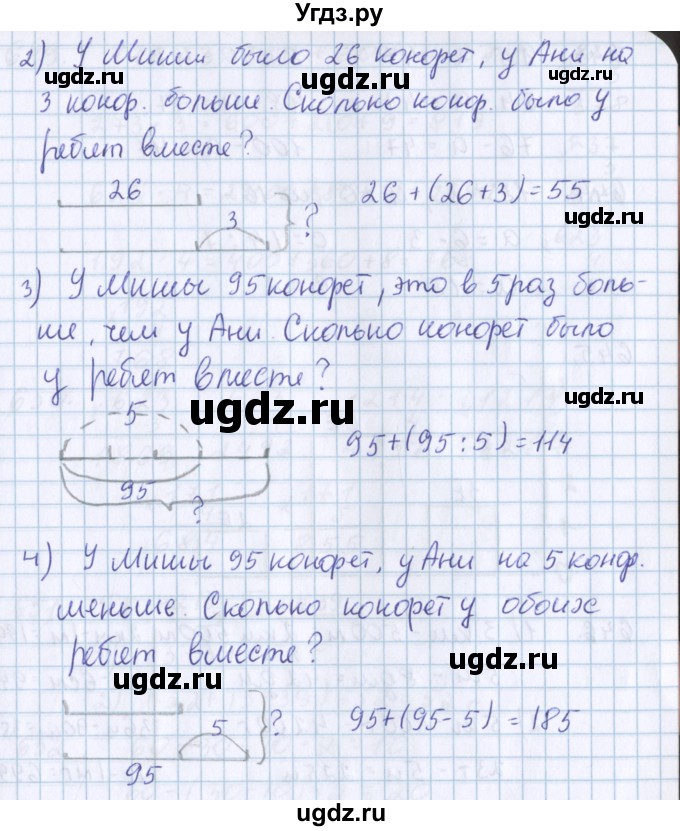 Угдз.ру
2) У Миши было 26 конфет, у Ани на
ugdz.ru ugdz.ru
3 конф. больше. Сколько конф. было у
ребят вместе?
26
3
?
26+(26+3)=55
ugdz.ru ugdz.ru
3) У Мишы 95 конфет, это в 5 раз боль-
ше, чем у Ани. Сколько конфет было
у ребят вместе?
ugdz.ru ugdz.ru
5
95
?
95+(95:5)=114
4) У Мишы 95 конфет, у Ани на 5 конф.
меньше. Сколько конфет у обоих
ребят вместе?
ugdz.ru ugdz.ru
5
?
95
95+(95-5)=185
ugdz.ru